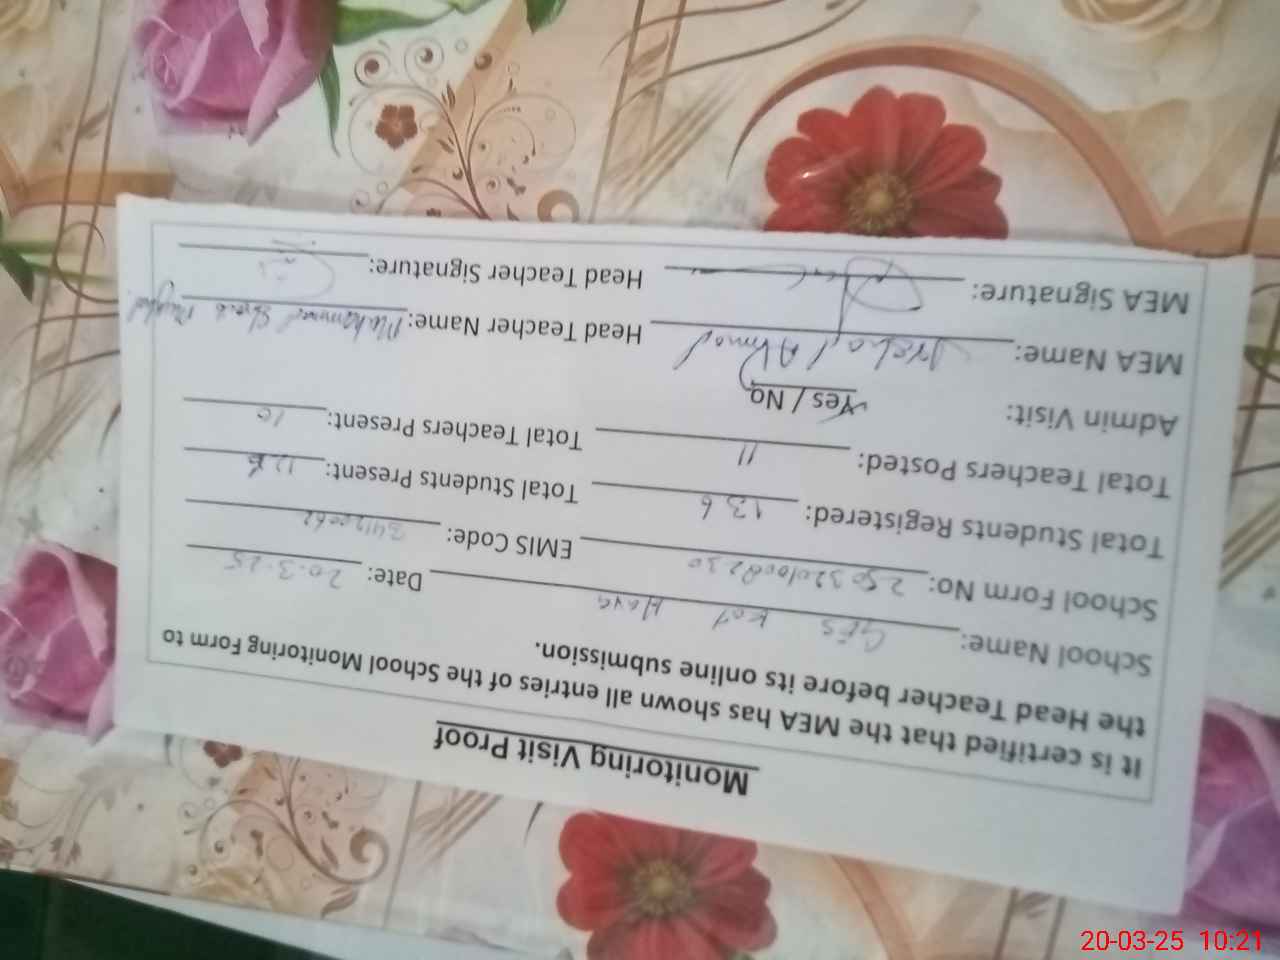 Monitoring Visit Proof
It is certified that the MEA has shown all entries of the School Monitoring Form to
the Head Teacher before its online submission.
School Name: GES Kot Haya Date: 20.3.25
School Form No: EMIS Code:
Total Students Registered: 136 Total Students Present:
Total Teachers Posted: 11 Total Teachers Present: 10
Admin Visit: Yes / No
MEA Name: Irshad Ahmad Head Teacher Name: Muhammad
MEA Signature: Head Teacher Signature:
20-03-25 10:21